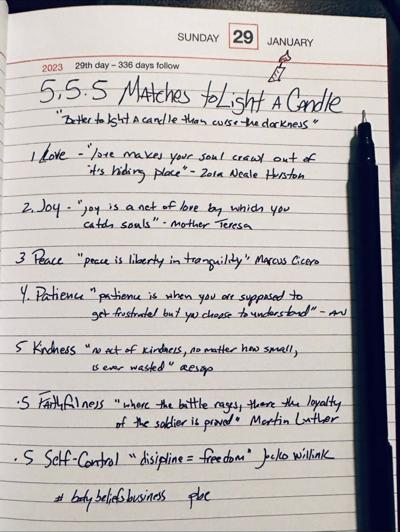 SUNDAY 29 JANUARY
2023 29th day – 336 days follow
5,5.5 Matches to Light A Candle
"Better to light a candle than curse the darkness"
1. Love - "love makes your soul crawl out of
it's hiding place" - Zora Neale Hurston
2. Joy - "joy is a net of love by which you
catch souls" - Mother Teresa
3 Peace "peace is liberty in tranquility" Marcus Cicero
4. Patience "patience is when you are supposed to
get frustrated but you choose to understand" -
5 Kindness "no act of kindness, no matter how small,
is ever wasted" aesop
.5 Faithfulness "where the battle rages, there the loyalty
of the soldier is proved" Martin Luther
.5 Self-Control "disipline = freedom" Jocko Willink
# bodybeliefsbusiness